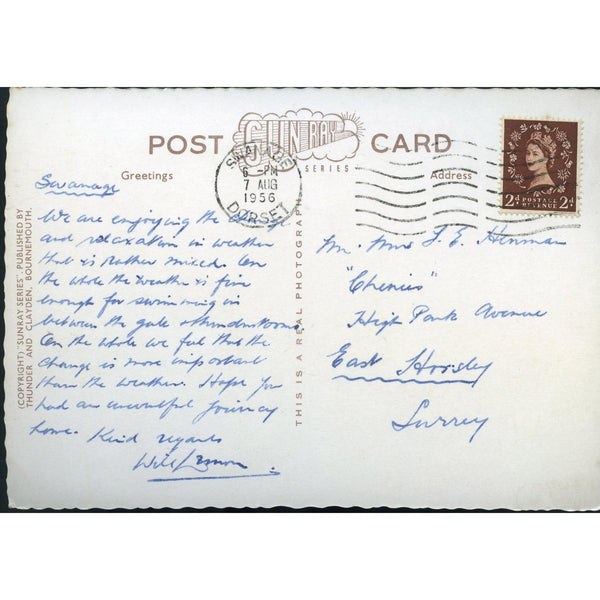 POST CARD
SUN RAY
SERIES
Greetings
Address
SWANAGE
6 - PM
7 AUG
1956
DORSET
2d POSTAGE REVENUE 2d
Swanage
We are enjoying the
and relaxation in weather
that is rather mixed. On
the whole the weather is fine
enough for swimming in
between the gale & thunderstorms.
On the whole we feel that the
change is more important
than the weather. Hope you
had an uneventful journey
home. Kind regards
Mr. Mrs J. E. Henman
"Chenies"
High Park Avenue
East Horsley
Surrey
(COPYRIGHT) "SUNRAY SERIES", PUBLISHED BY
THUNDER AND CLAYDEN, BOURNEMOUTH.
THIS IS A REAL PHOTOGRAPH